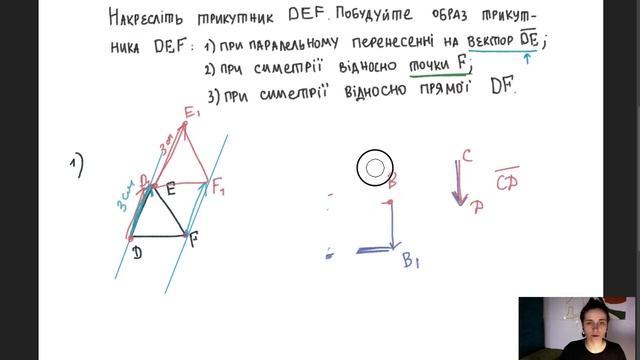 НАКРЕСЛІТЬ ТРИКУТНИК DEF. ПОБУДУЙТЕ ОБРАЗ ТРИКУТ-
НИКА DEF: 1) ПРИ ПАРАЛЕЛЬНОМУ ПЕРЕНЕСЕННІ НА ВЕКТОР DE;
2) ПРИ СИМЕТРІЇ ВІДНОСНО ТОЧКИ F;
3) ПРИ СИМЕТРІЇ ВІДНОСНО ПРЯМОЇ DF.
1)
E1
3 см
3 см
D1
E
F1
D
F
B
B1
C
D
CD